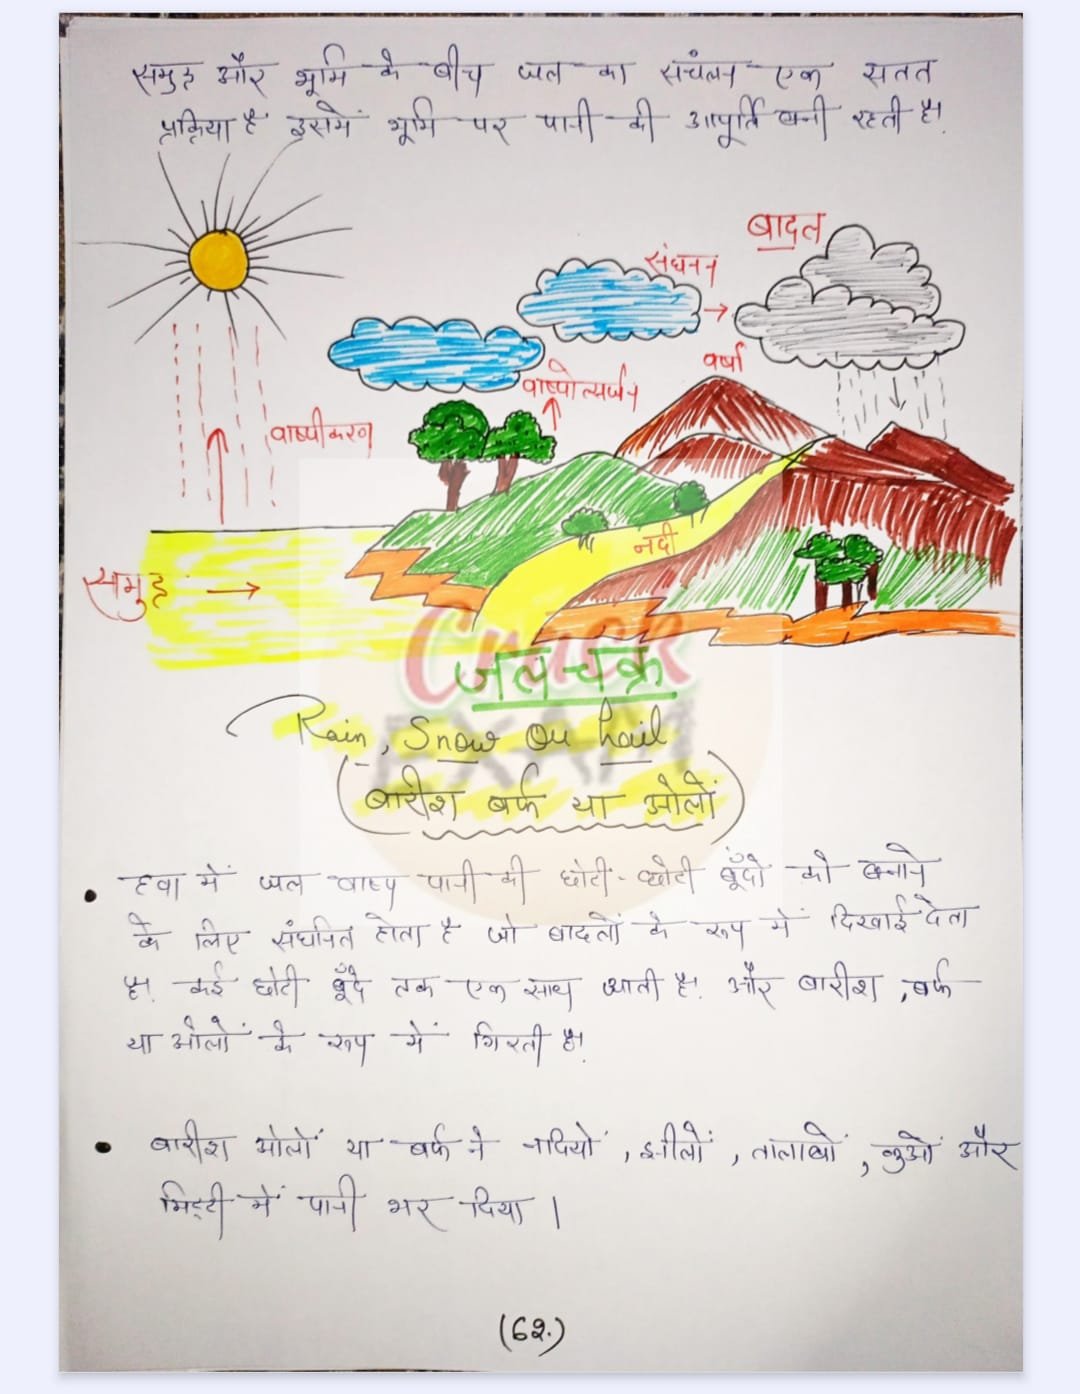 समुद्र और भूमि के बीच जल का संचलन एक सतत
प्रक्रिया है इसमें भूमि पर पानी की आपूर्ति बनी रहती है।
बादल
संघनन
वर्षा
वाष्पोत्सर्जन
वाष्पीकरण
नदी
समुद्र
जल-चक्र
Crack
EXAM
Rain, Snow or hail
(बारीश बर्फ या ओलों)
• हवा में जल वाष्प पानी की छोटी-छोटी बूँदों को बनाने
के लिए संघनित होता है जो बादलों के रूप में दिखाई देता
है। कई छोटी बूँदे तक एक साथ आती है। और बारीश, बर्फ
या ओलों के रूप में गिरती है।
• बारीश ओलों या बर्फ ने नदियों, झीलों, तालाबों, कुओं और
मिट्टी में पानी भर दिया।
(62.)